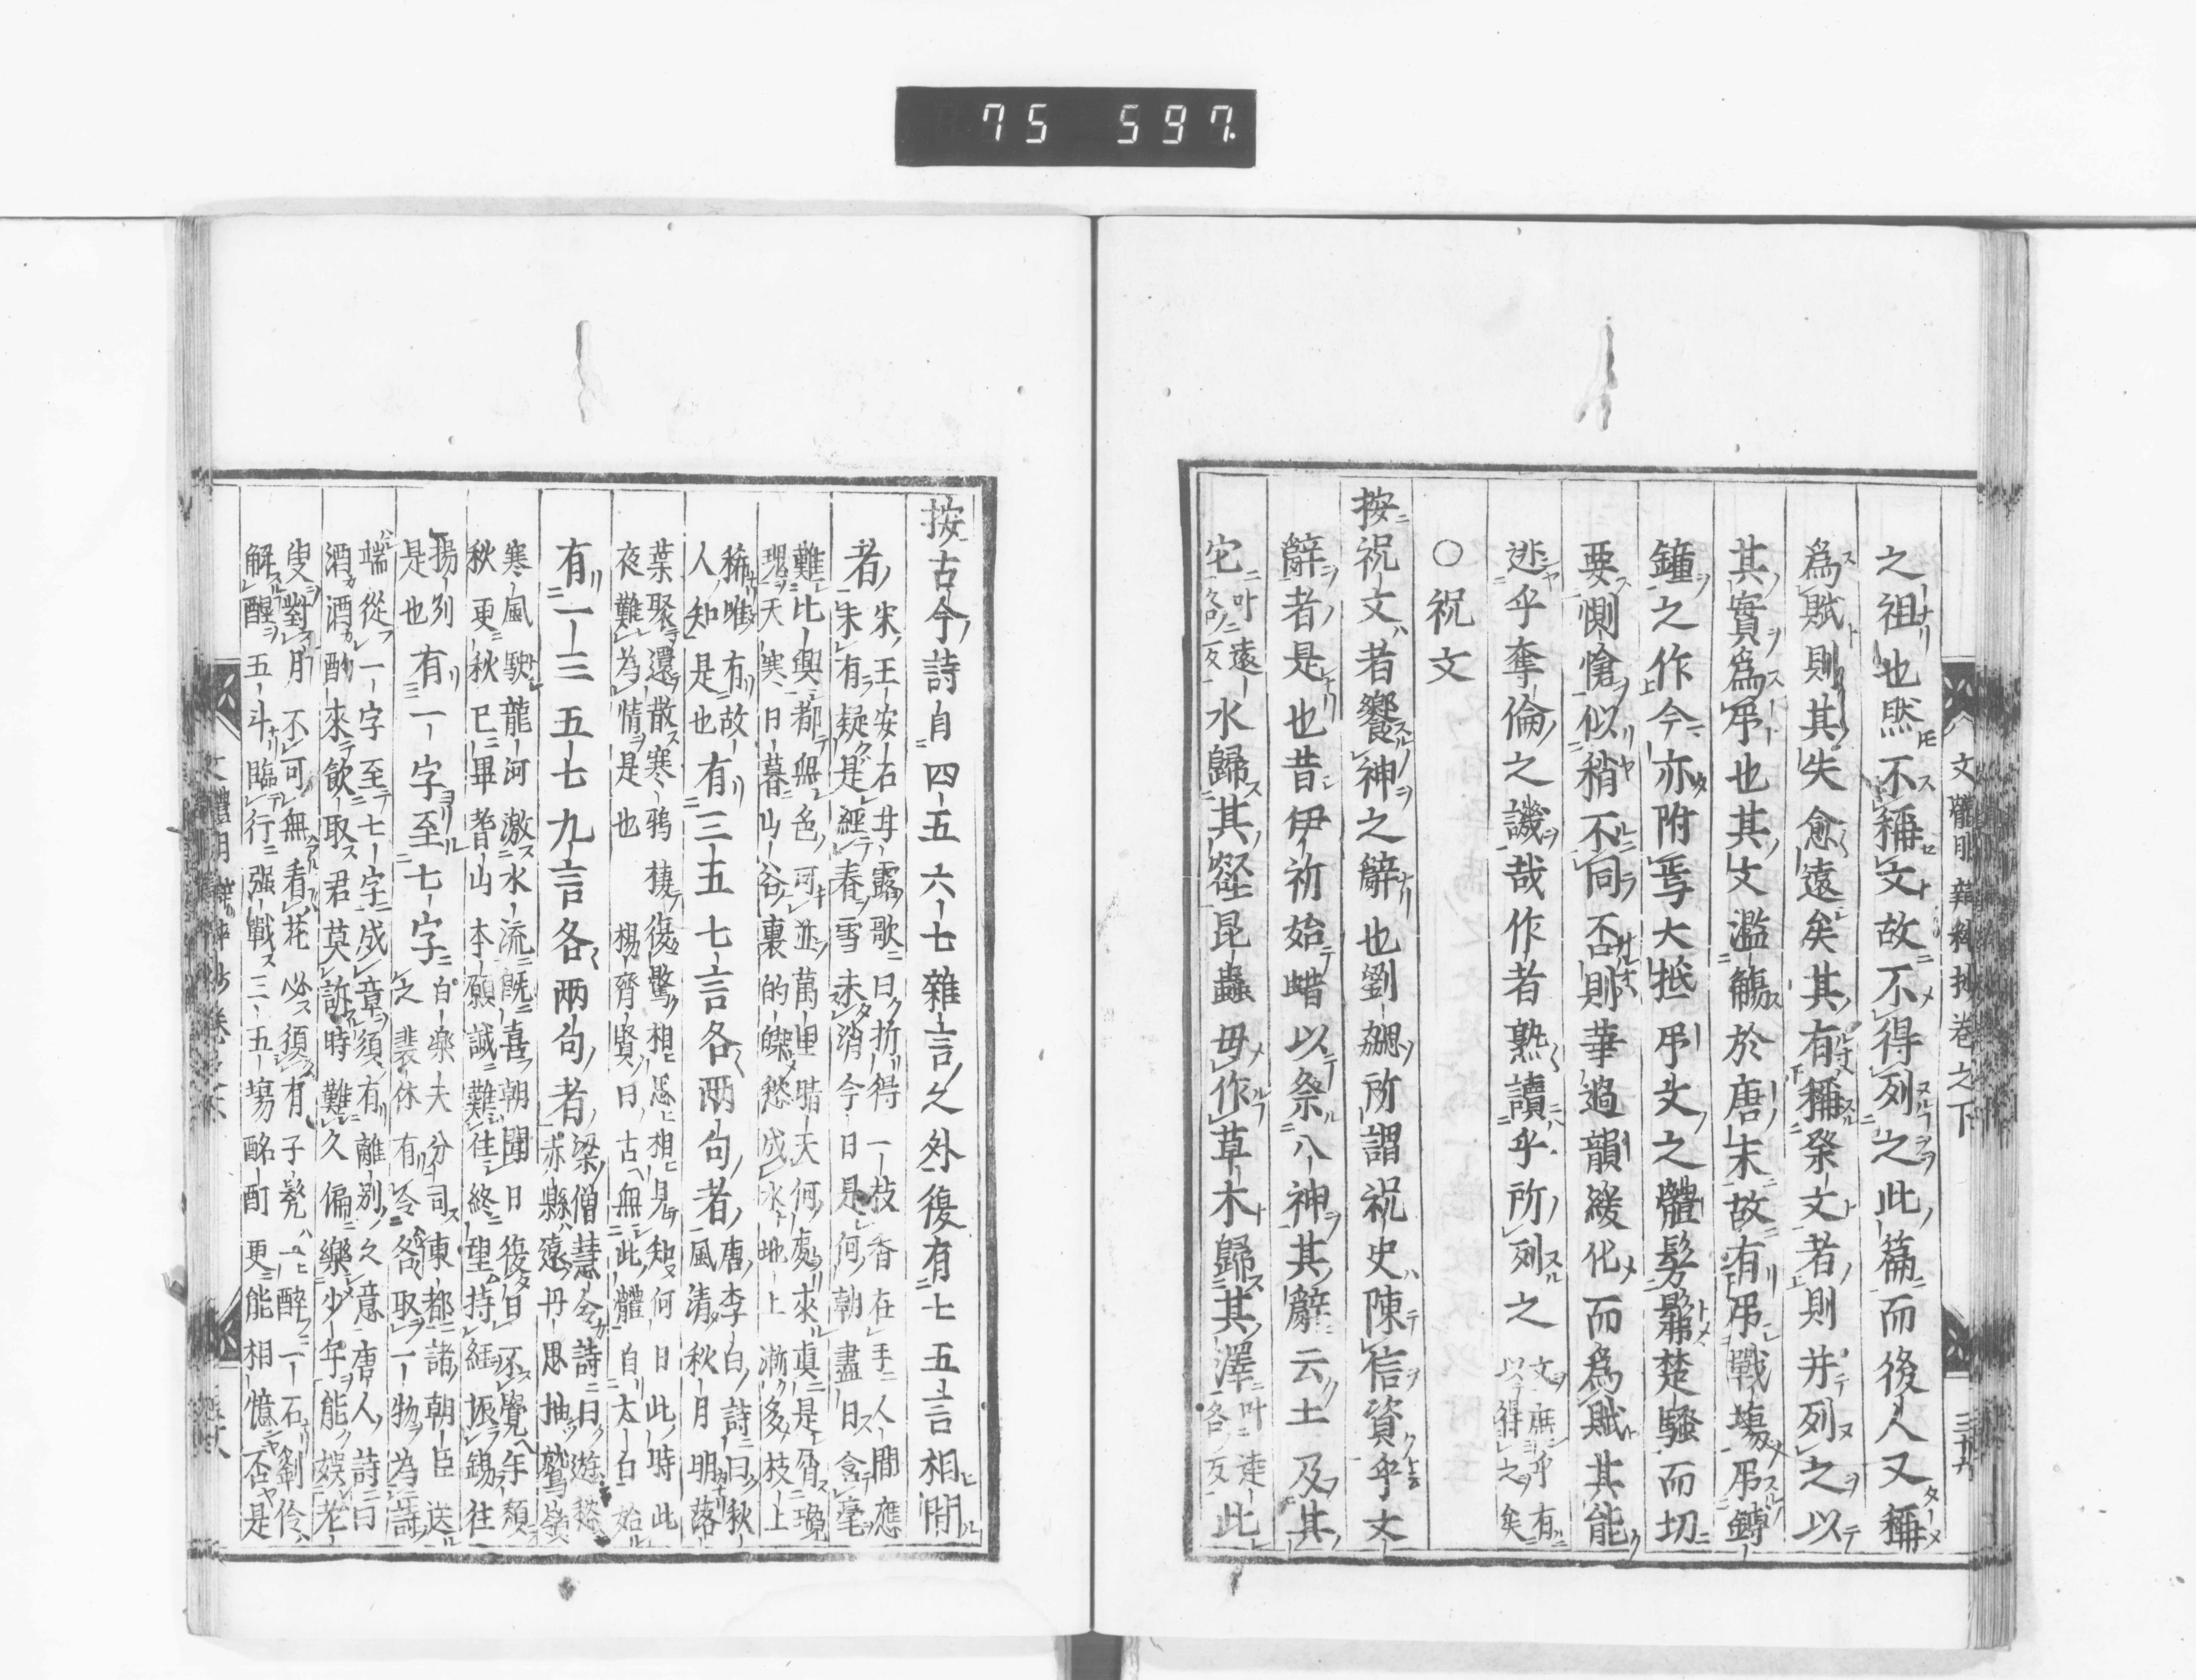 75 597.
文體明辯粹抄卷之下 三十六
之祖也然不稱文故不得列之此篇而後人又稱
爲賦則其失愈遠矣其有稱祭文者則并列之以
其實爲吊也其文濫觴於唐末故有吊戰塲吊鎛
鐘之作今亦附焉大抵吊文之體髣髴楚騷而切
要惻愴似稍不同否則華過韻緩化而爲賦其能
逃乎奪倫之譏哉作者熟讀乎所列之文庶乎有以得之矣
○祝文
按祝文者饗神之辭也劉勰所謂祝史陳信資乎文
辭者是也昔伊祈始蜡以祭八神其辭云土及其
宅叶遠各反水歸其壑昆蟲毋作草木歸其澤叶達各反此
按古今詩自四五六七雜言之外復有七五言相間
者宋王安石甘露歌曰折得一枝香在手人間應
未有疑是經春雪未消今日是何朝盡日含毫
難比興都無色可並萬里晴天何處來真是屑瓊
瑰天寒日暮山谷裏的皪愁成水池上漸多枝上
稀唯有故
人知是也有三五七言各兩句者唐李白詩曰秋
風清秋月明落
葉聚還散寒鴉棲復驚相思相見知何日此時此
夜難為情是也 楊齊賢曰古無此體自太白始
有一三五七九言各兩句者梁僧慧令詩曰遊愁
赤縣遠丹思抽鷲嶺
寒風駛龍河激水流既喜朝聞日復日不覺年頹
秋更秋已畢耆山本願誠難住終望持經振錫往
是也有一字至七字白樂夫分司東都諸朝臣送
之裴休有令各取一物為詩
端從一字至七字成章須有離別之意唐人詩曰
酒酒酌來飲取君莫訴時難久偏樂少年能娛老
叟對月不可無看花必須有子髡一醉一石劉伶
解酲五斗臨行强戰三五塲酩酊更能相憶否是